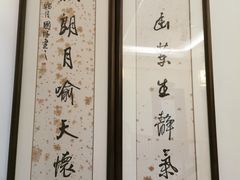 幽蘭生靜氣
朗月喻天懷